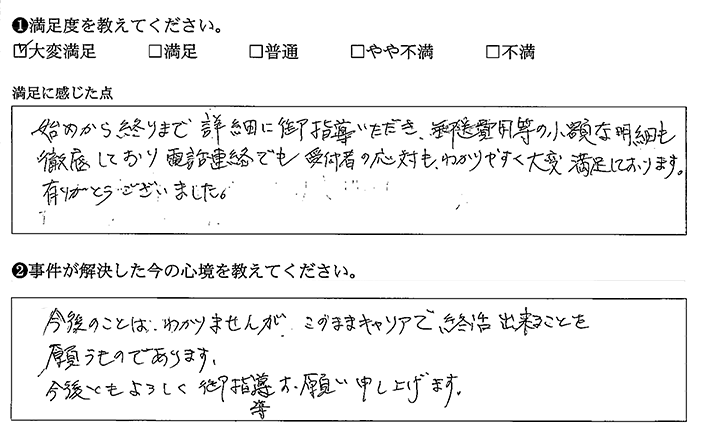 ❶満足度を教えてください。
☑大変満足 □満足 □普通 □やや不満 □不満
満足に感じた点
始めから終りまで詳細に御指導いただき、郵送費用等の小額な明細も
徹底しており電話連絡でも受付者の応対も、わかりやすく大変満足しております。
有りがとうございました。
❷事件が解決した今の心境を教えてください。
今後のことは、わかりませんが、このままキャリアで終活出来ることを
願うものであります。
今後ともよろしく御指導お願い申し上げます。
等